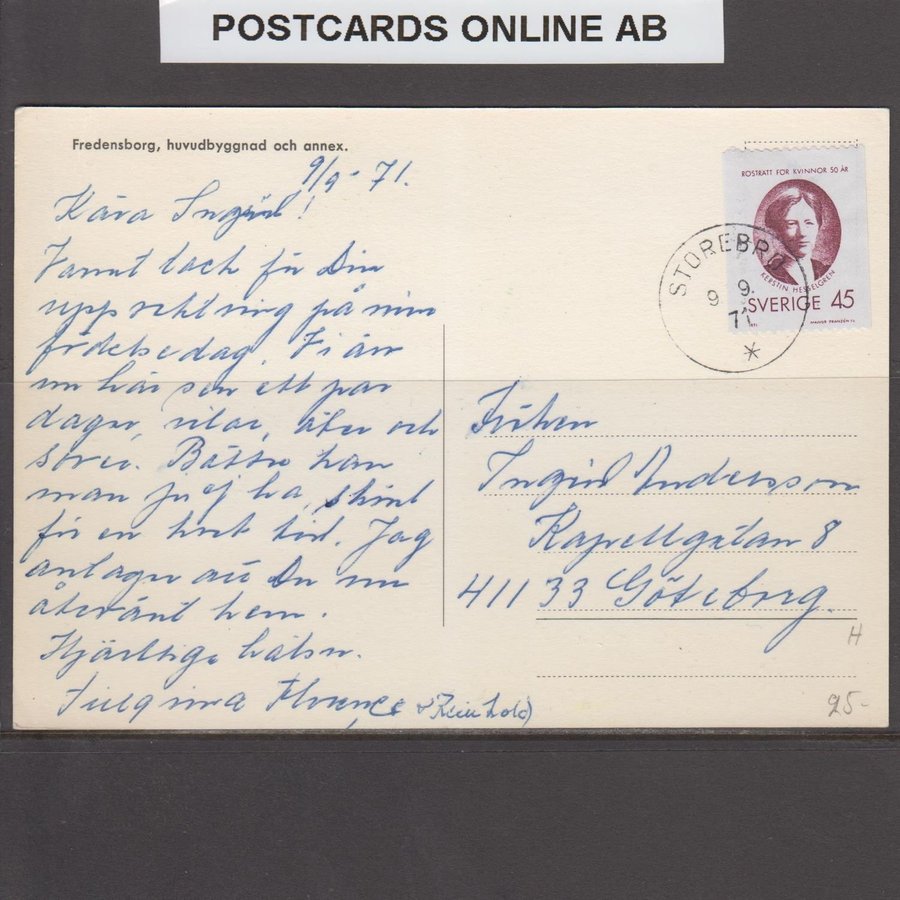 POSTCARDS ONLINE AB
Fredensborg, huvudbyggnad och annex.
9/9-71.
Kära Ingrid!
Varmt tack för Din
uppvaktning på min
födelsedag. Vi är
nu här sen ett par
dagar, vilar, äter och
sover. Bättre kan
man ju ej ha, skönt
för en kort tid. Jag
antager att Du nu
återvänt hem.
Hjärtliga hälsn.
(Reinhold)
RÖSTRÄTT FÖR KVINNOR 50 ÅR
KERSTIN HESSELGREN
SVERIGE 45
1971
MAJVOR FRANZÉN SC.
STOREBRO
9 9.
71
Fröken
Ingrid Andersson
Kapellgatan 8
41133 Göteborg.
H
25-